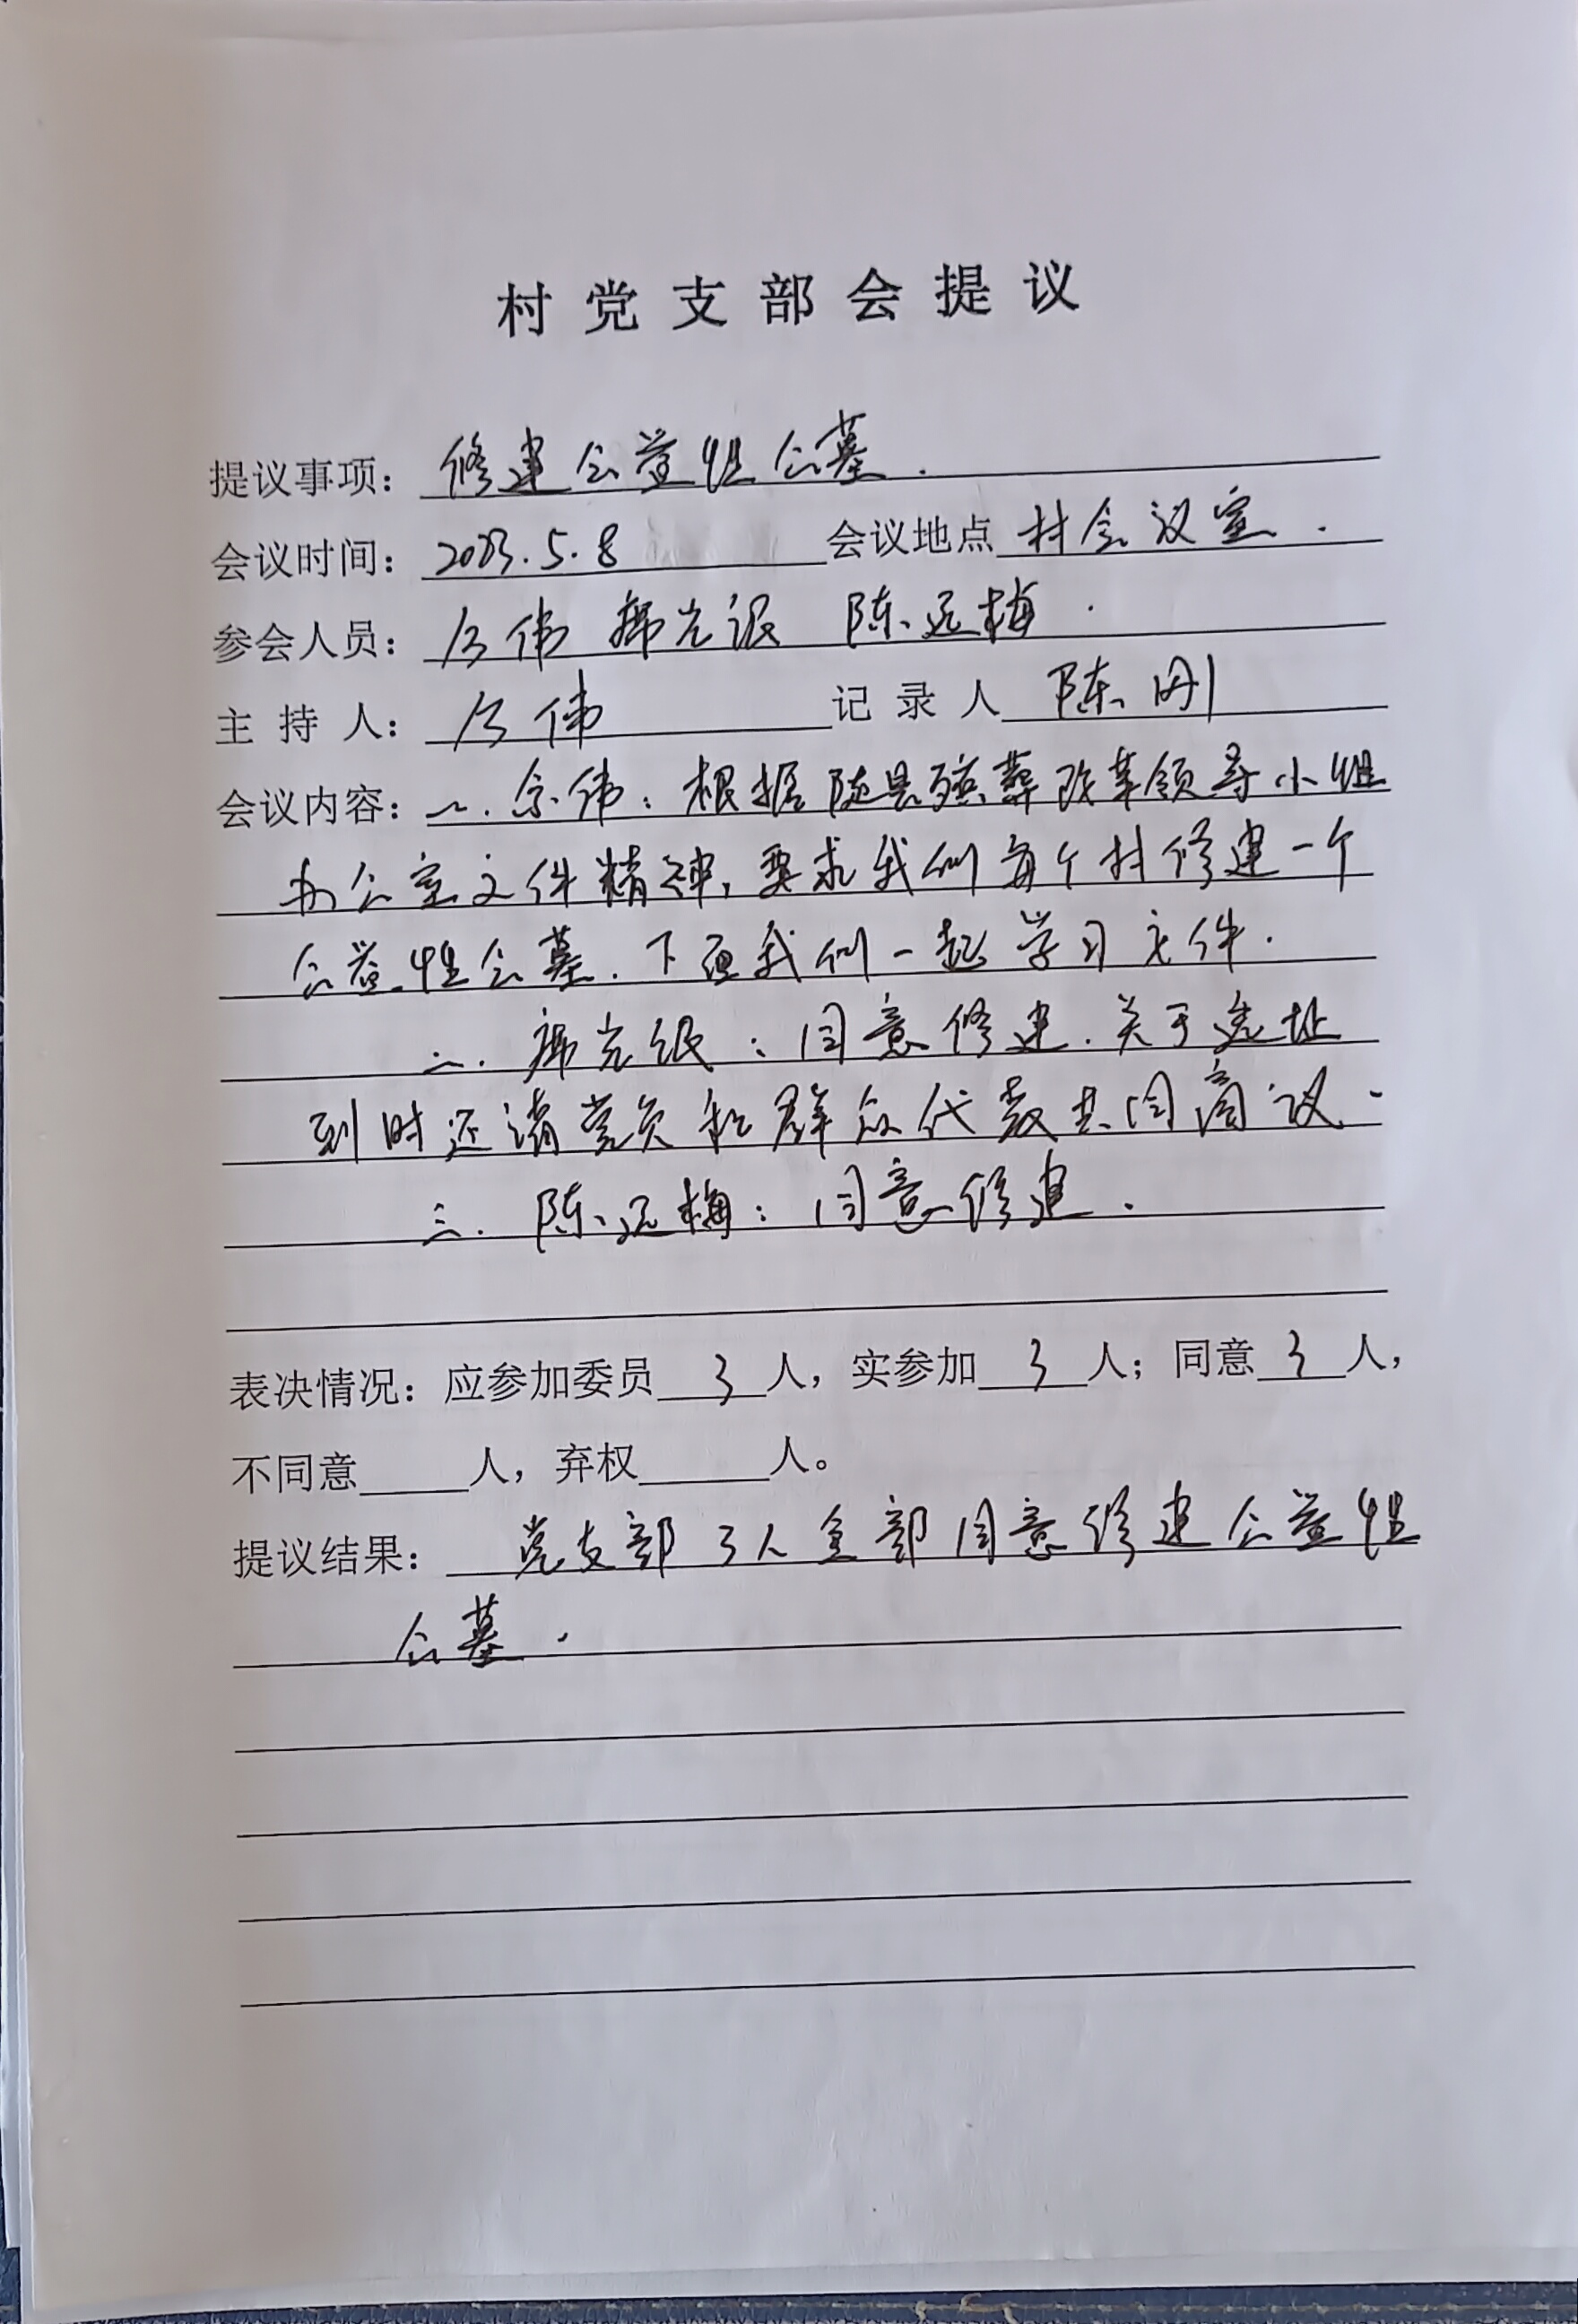 村党支部会提议
提议事项：修建公益性公墓.
会议时间：2023.5.8 会议地点 村会议室.
参会人员：余伟 光银 陈远梅.
主持人：余伟 记录人 陈刚
会议内容：一.余伟：根据随县殡葬改革领导小组
办公室文件精神,要求我们每个村修建一个
公益性公墓.下面我们一起学习文件.
二.光银：同意修建.关于选址
到时还请党员和群众代表共同商议.
三.陈远梅：同意修建.
表决情况：应参加委员3人，实参加3人；同意3人，
不同意 人，弃权 人。
提议结果：党支部3人全部同意修建公益性
公墓.